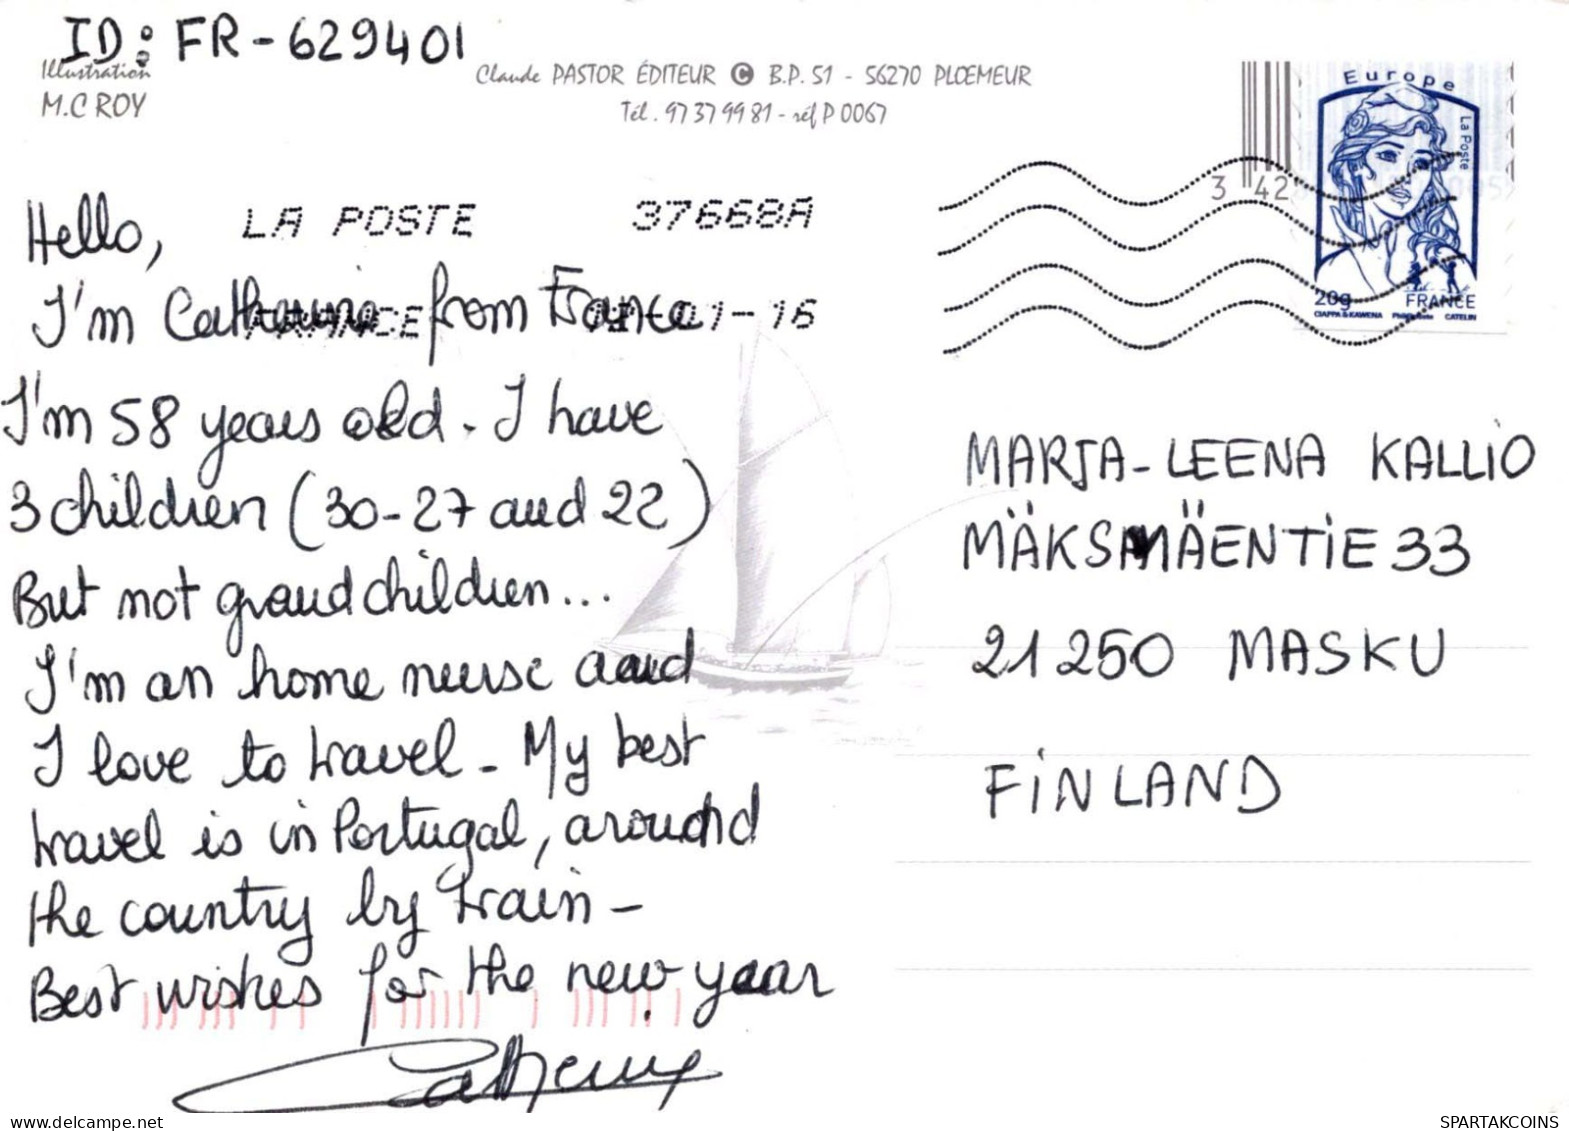 ID: FR-629401
Illustration
M.C ROY
Claude PASTOR ÉDITEUR © B.P. 51 - 56270 PLOEMEUR
Tél. 97 37 99 81 - réf P 0067
Europe
La Poste
3 42
20g FRANCE
CIAPPA & KAWENA Phil@poste CATELIN
LA POSTE 37668A
FRANCE -01-16
Hello,
I'm Catherine from France
I'm 58 years old. I have
3 children (30-27 and 22)
But not grandchildren...
I'm an home nurse and
I love to travel - My best
travel is in Portugal, around
the country by train -
Best wishes for the new year
Catherine
MARJA-LEENA KALLIO
MÄKSMÄENTIE 33
21250 MASKU
FINLAND
SPARTAKCOINS